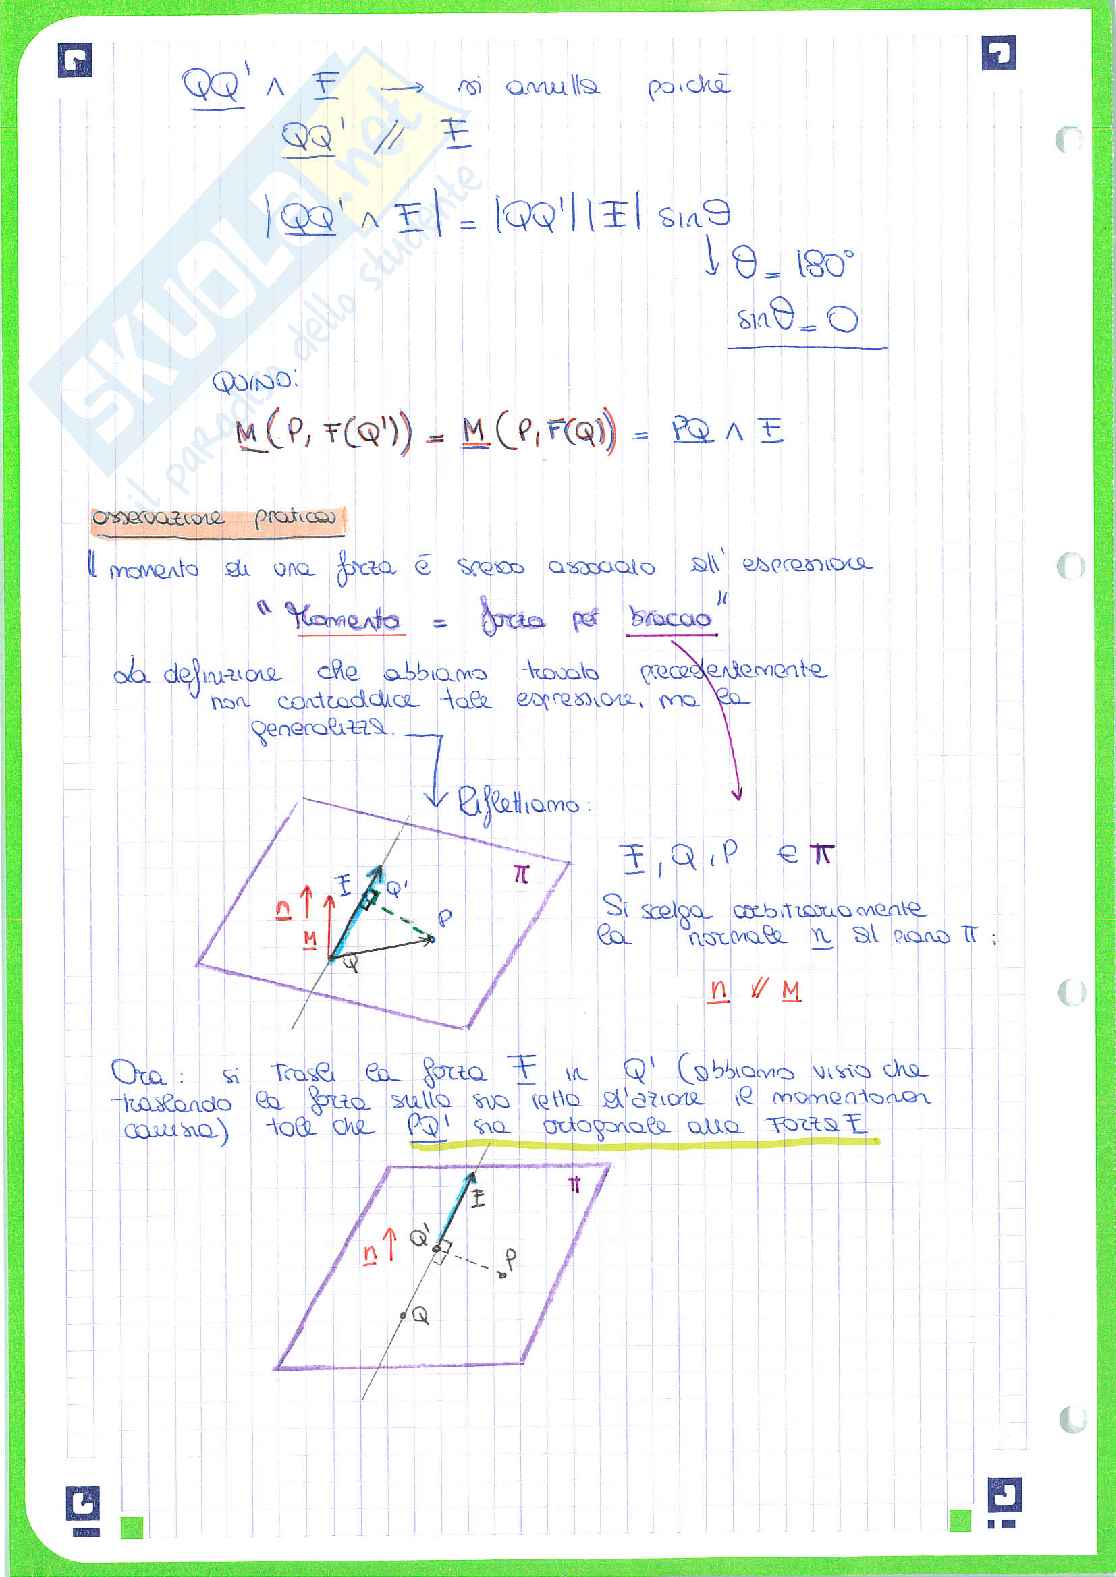 QQ' ∧ F → si annulla poiché
QQ' // F
|QQ' ∧ F| = |QQ'||F| sinθ
θ = 180°
sinθ = 0
QUINDI:
M(P, F(Q')) = M(P, F(Q)) = PQ ∧ F
osservazione pratica
Il momento di una forza è spesso associato all'espressione
"Momento = forza per braccio"
La definizione che abbiamo trovato precedentemente
non contraddice tale espressione, ma la
generalizza.
Riflettiamo:
π
F Q'
n
M
P
Q
F, Q, P ∈ π
Si scelga arbitrariamente
la normale n al piano π:
n // M
Ora: si trasli la forza F in Q' (abbiamo visto che
traslando la forza sulla sua retta d'azione il momento non
cambia) tale che PQ' sia ortogonale alla FORZA F
π
F
Q'
n
P
Q
SKUOLA.net
il paradiso dello studente